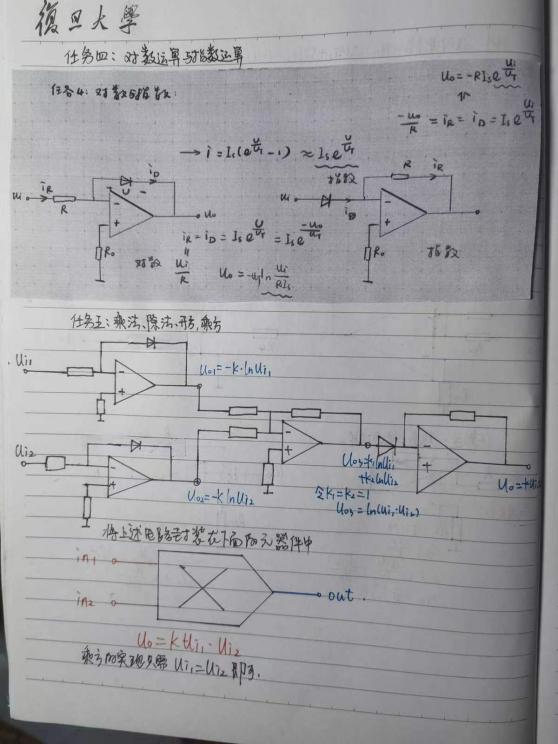 復旦大學
任务四：对数运算与指数运算
任务4：对数与指数：
Uo = -RIs e^(Ui/UT)
-Uo/R = iR = iD = Is e^(Ui/UT)
→ i = Is(e^(U/UT) - 1) ≈ Is e^(U/UT)
指数
Ui iR R U iD - + Ro Uo
Ui iD R iR - + Ro
iR = iD = Is e^(U/UT) = Is e^(-Uo/UT)
Ui/R
对数
Uo = -UT ln Ui/(RIs)
指数
任务五：乘法、除法、开方、乘方
Ui1
Uo1 = -k·lnUi1
Ui2
Uo2 = -k lnUi2
Uo3 = k1 lnUi1
+k2 lnUi2
令k1=k2=1
Uo3 = ln(Ui1·Ui2)
将上述电路封装在下面的元器件中
in1
in2
out.
Uo = k Ui1·Ui2
乘方的实现只需 Ui1=Ui2 即可.